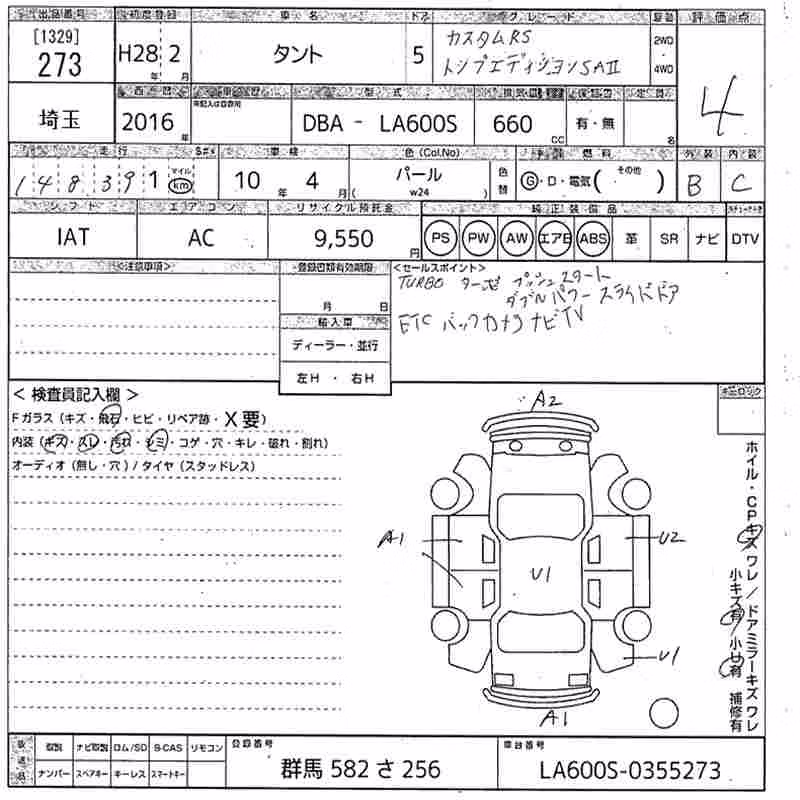 出品番号 初度登録 車名 ドア グレード 駆動 評価点
[1329]
273
H28 2
年 月
タント
5
カスタムRS
トップエディションSAⅡ
2WD
4WD
4
西暦 車歴 型式 排気量 保証書 定員
未記入は自家用
埼玉
2016 年
DBA - LA600S
660 CC
有・無
名
走行 車検 色(Col,No) 燃料 外装 内装
148391
マイル
km
10 年 4 月
パール
( w24 )
色替
G・D・電気( その他 )
B
C
シフト エアコン リサイクル預託金 純正装備品
IAT
AC
9,550 円
PS PW AW エアB ABS 革 SR ナビ DTV
<注意事項>
登録書類有効期限
月 日
輸入車
ディーラー・並行
左H ・ 右H
<セールスポイント>
TURBO ターボ プッシュスタート
ダブルパワースライドドア
ETC バックカメラ ナビTV
< 検査員記入欄 >
Fガラス (キズ・飛石・ヒビ・リペア跡・X要)
内装 (キズ・スレ・汚れ・シミ・コゲ・穴・キレ・破れ・割れ)
オーディオ (無し・穴) / タイヤ (スタッドレス)
A2
A1
U2
U1
U1
A1
ホイル・CPキズ ワレ / ドアミラーキズ ワレ
小キズ有 / 小U有 補修有
後送品
取説 ナビ取説 ロム/SD B-CAS リモコン
ナンバー スペアキー キーレス スマートキー
登録番号
群馬 582 さ 256
車台番号
LA600S-0355273